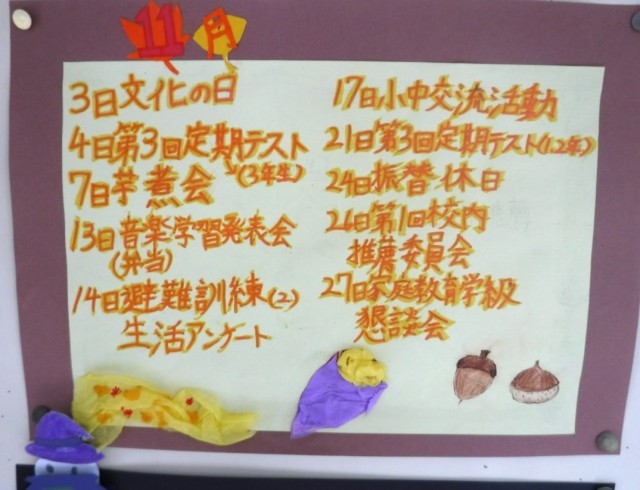 11月
3日文化の日
4日第3回定期テスト
(3年生)
7日芋煮会
13日音楽学習発表会
(弁当)
14日避難訓練(2)
生活アンケート
17日小中交流活動
21日第3回定期テスト(1.2年)
24日振替休日
26日第1回校内
推薦委員会
27日家庭教育学級
懇談会